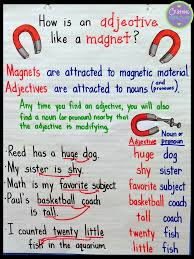 How is an adjective
like a magnet?
Magnets are attracted to magnetic material.
Adjectives are attracted to nouns (and pronouns).
Any time you find an adjective, you will also
find a noun (or pronoun) nearby that
the adjective is modifying.
Adjective
Noun (or Pronoun)
• Reed has a huge dog.
huge dog
• My sister is shy.
shy sister
• Math is my favorite subject.
favorite subject
• Paul's basketball coach
is tall.
basketball coach
tall coach
• I counted twenty little
fish in the aquarium.
twenty fish
little fish